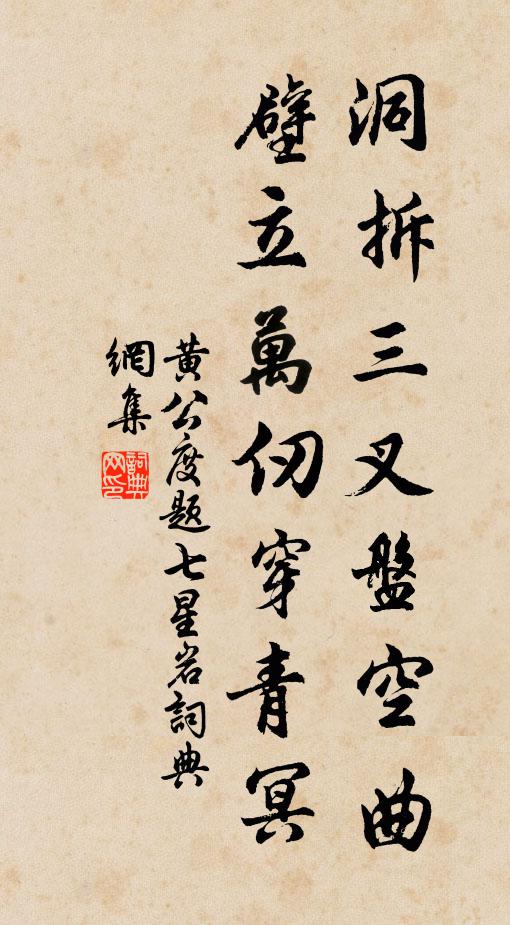 洞拆三叉盤空曲
壁立萬仞穿青冥
黄公度题七星岩詞典
網集
詞典
网印